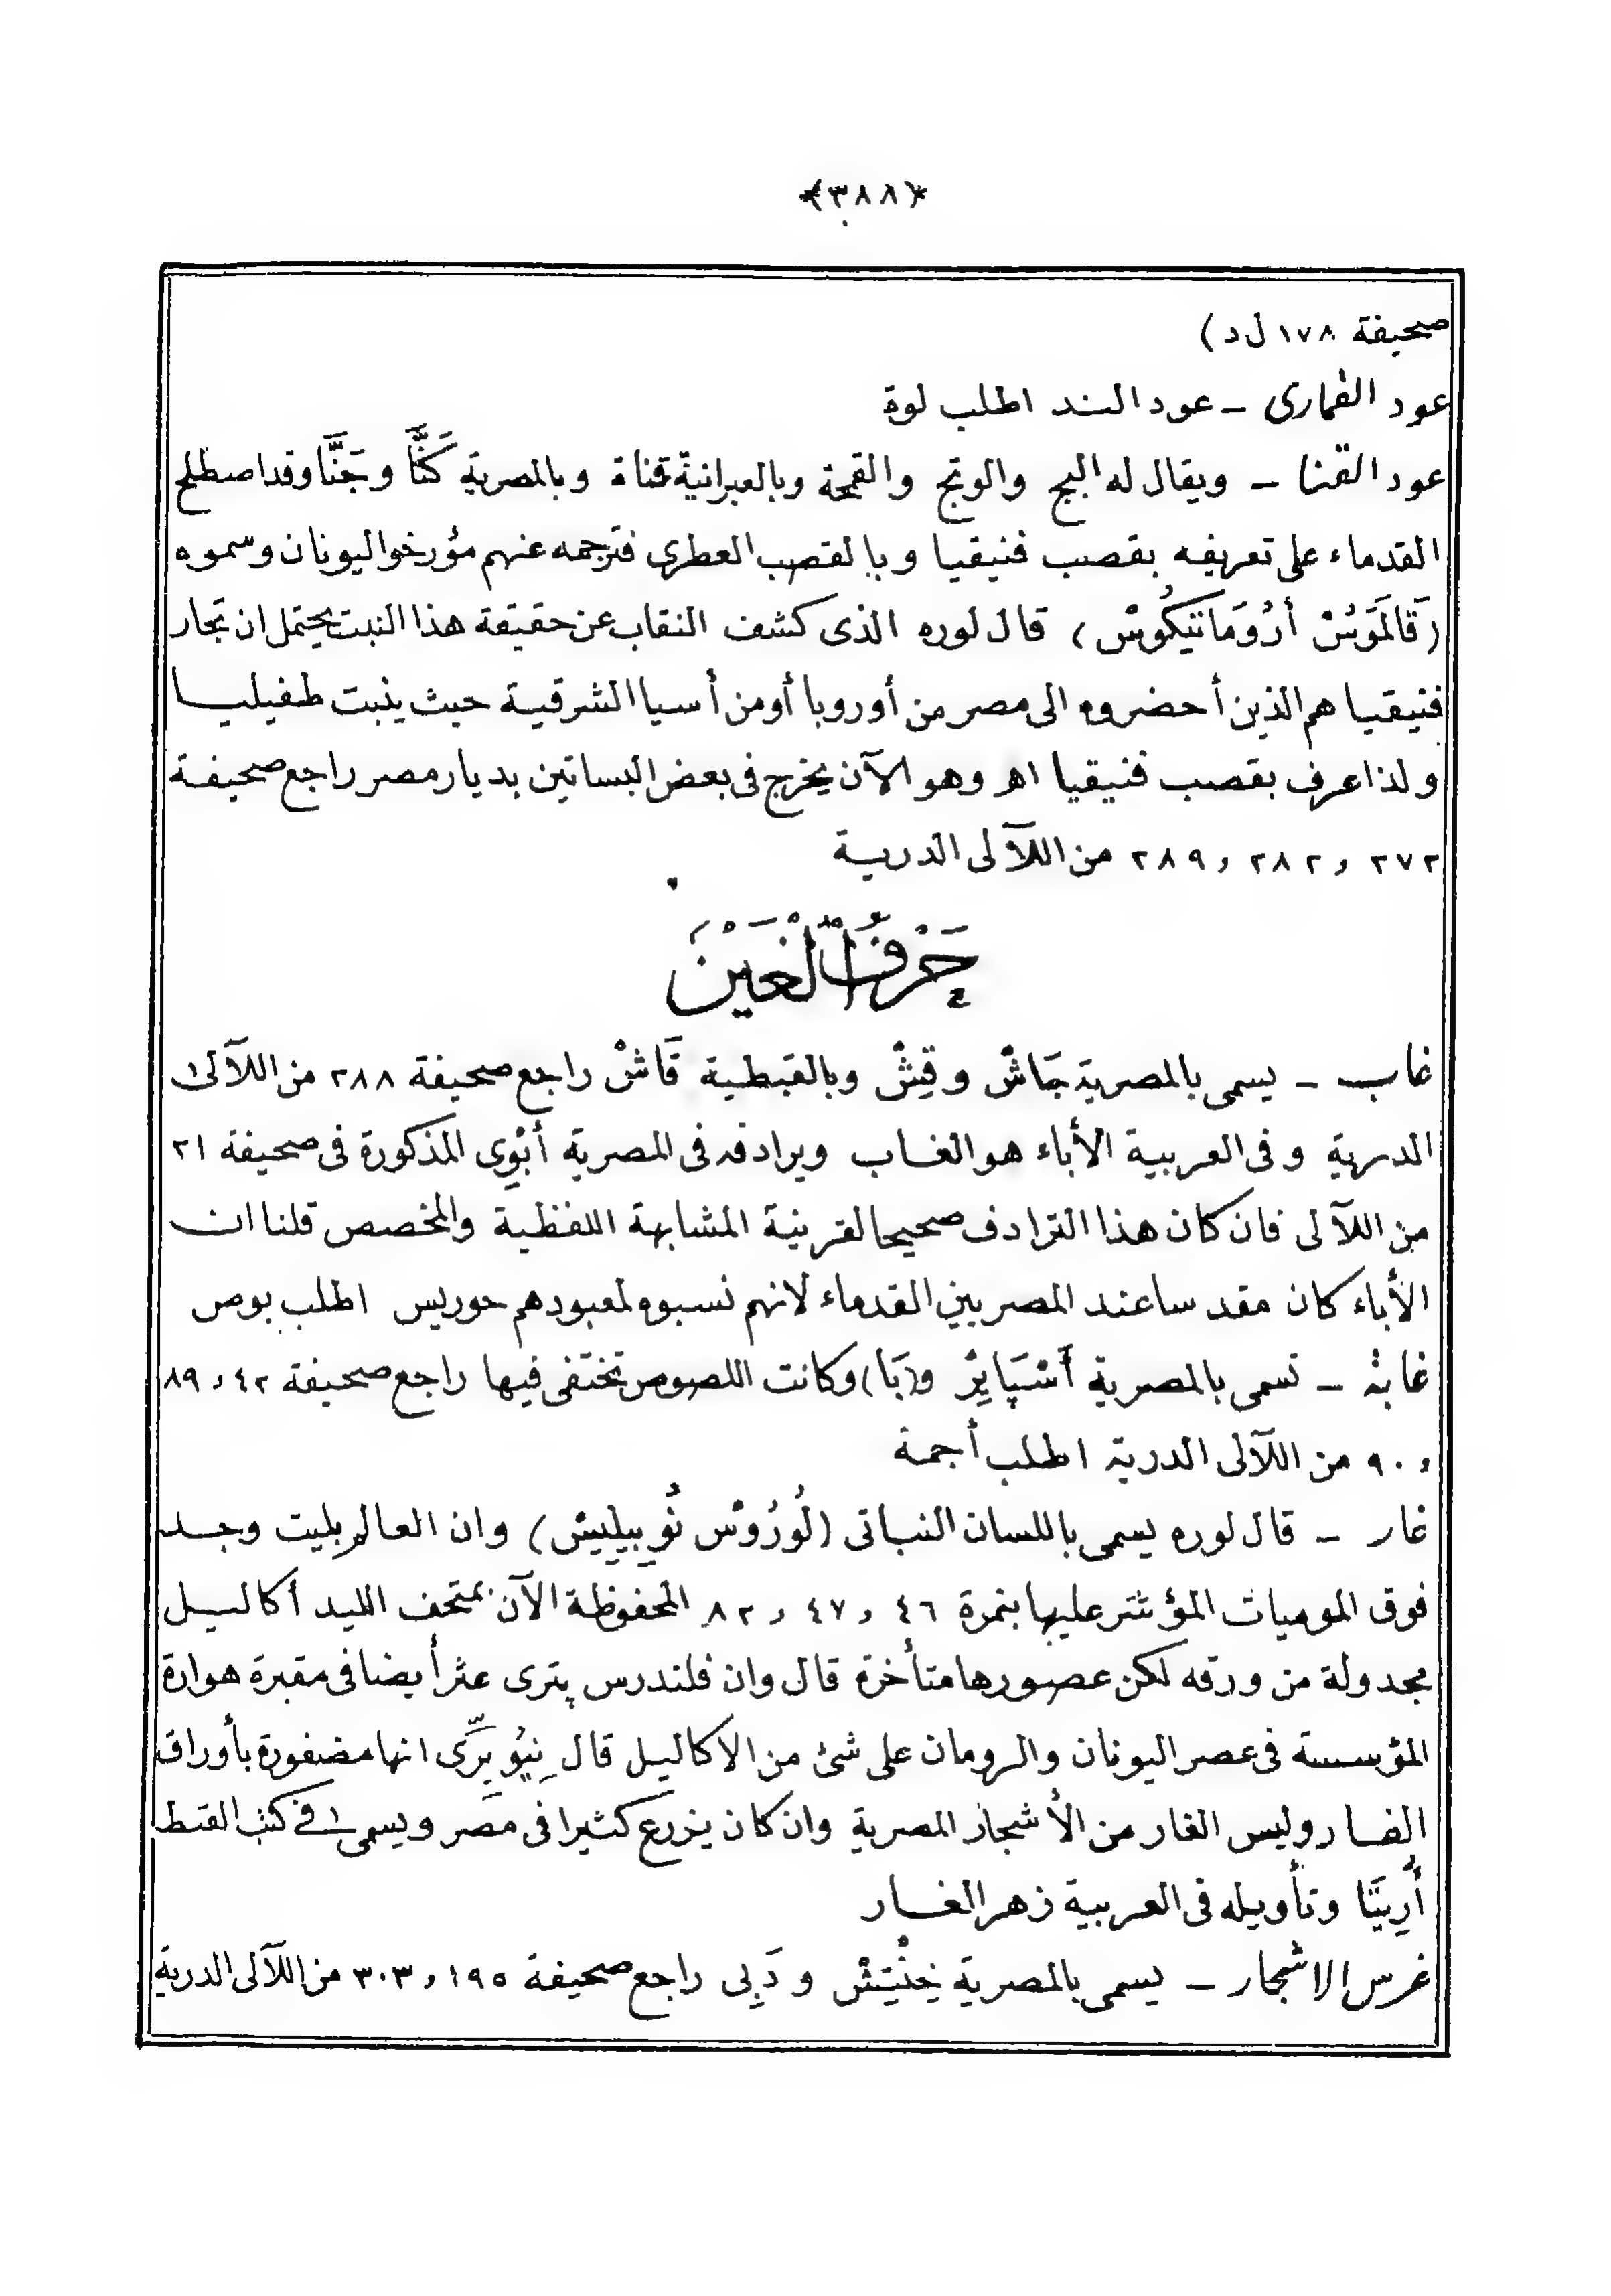 ﴿٣٨٨﴾
صحيفة ١٧٨ ل د )
عود القمارى – عود الند اطلب لوة
عود القنا – ويقال له البج والوتج والقمحة وبالعبرانية قناة وبالمصرية كَنَّا وجَنَّا وقد اصطلح
القدماء على تعريفه بقصب فنيقيا وبالقصب العطرى فترجمه عنهم مؤرخو اليونان وسموه
(قَالَمَوُسْ أَرُومَاتِيكُوسْ) قال لوره الذى كشف النقاب عن حقيقة هذا النبت يحتمل ان تجار
فنيقيا هم الذين أحضروه الى مصر من أوروبا أو من أسيا الشرقية حيث ينبت طفيليا
ولذا عرف بقصب فنيقيا اهـ وهو الآن يخرج فى بعض البساتين بديار مصر راجع صحيفة
٢٧٢ , ٢٨٢ , ٢٨٩ من اللآلى الدرية
حَرْفُ الْغَيْن
غاب – يسمى بالمصرية جَاشْ وقِشْ وبالقبطية قَاشْ راجع صحيفة ٢٨٨ من اللآلى
الدرية وفى العربية الأباء هو الغاب ويرادفه فى المصرية أبْوِى المذكورة فى صحيفة ٢١
من اللآلى فان كان هذا الترادف صحيحا لقرينة المشابهة اللفظية والمخصص قلنا ان
الأباء كان مقدسا عند المصريين القدماء لانهم نسبوه لمعبودهم حوريس اطلب بوص
غابة – تسمى بالمصرية أَسْبَايِرْ و(بَا) وكانت اللصوص تختفى فيها راجع صحيفة ٤٢ , ٨٩
, ٩٠ من اللآلى الدرية اطلب أجمة
غار – قال لوره يسمى باللسان النباتى (لُورُوسْ نُوبِيلِيسْ) وان العالم بليت وجد
فوق الموميات المؤشر عليها بنمرة ٤٦ , ٤٧ , ٨٢ المحفوظة الآن بمتحف الليد أكاليل
مجدولة من ورقه لكن عصورها متأخرة قال وان فلندرس پترى عثر أيضا فى مقبرة هوارة
المؤسسة فى عصر اليونان والرومان على شئ من الاكاليل قال نِيُوبَرِّى انها مضفورة بأوراق
الغار وليس الغار من الأشجار المصرية وان كان يزرع كثيرا فى مصر ويسمى فى كتب القبط
أَرِيَنَا وتأويله فى العربية زهر الغار
غرس الاشجار – يسمى بالمصرية خِنْتِشْ و دَبِى راجع صحيفة ١٩٥ , ٣٠٣ من اللآلى الدرية